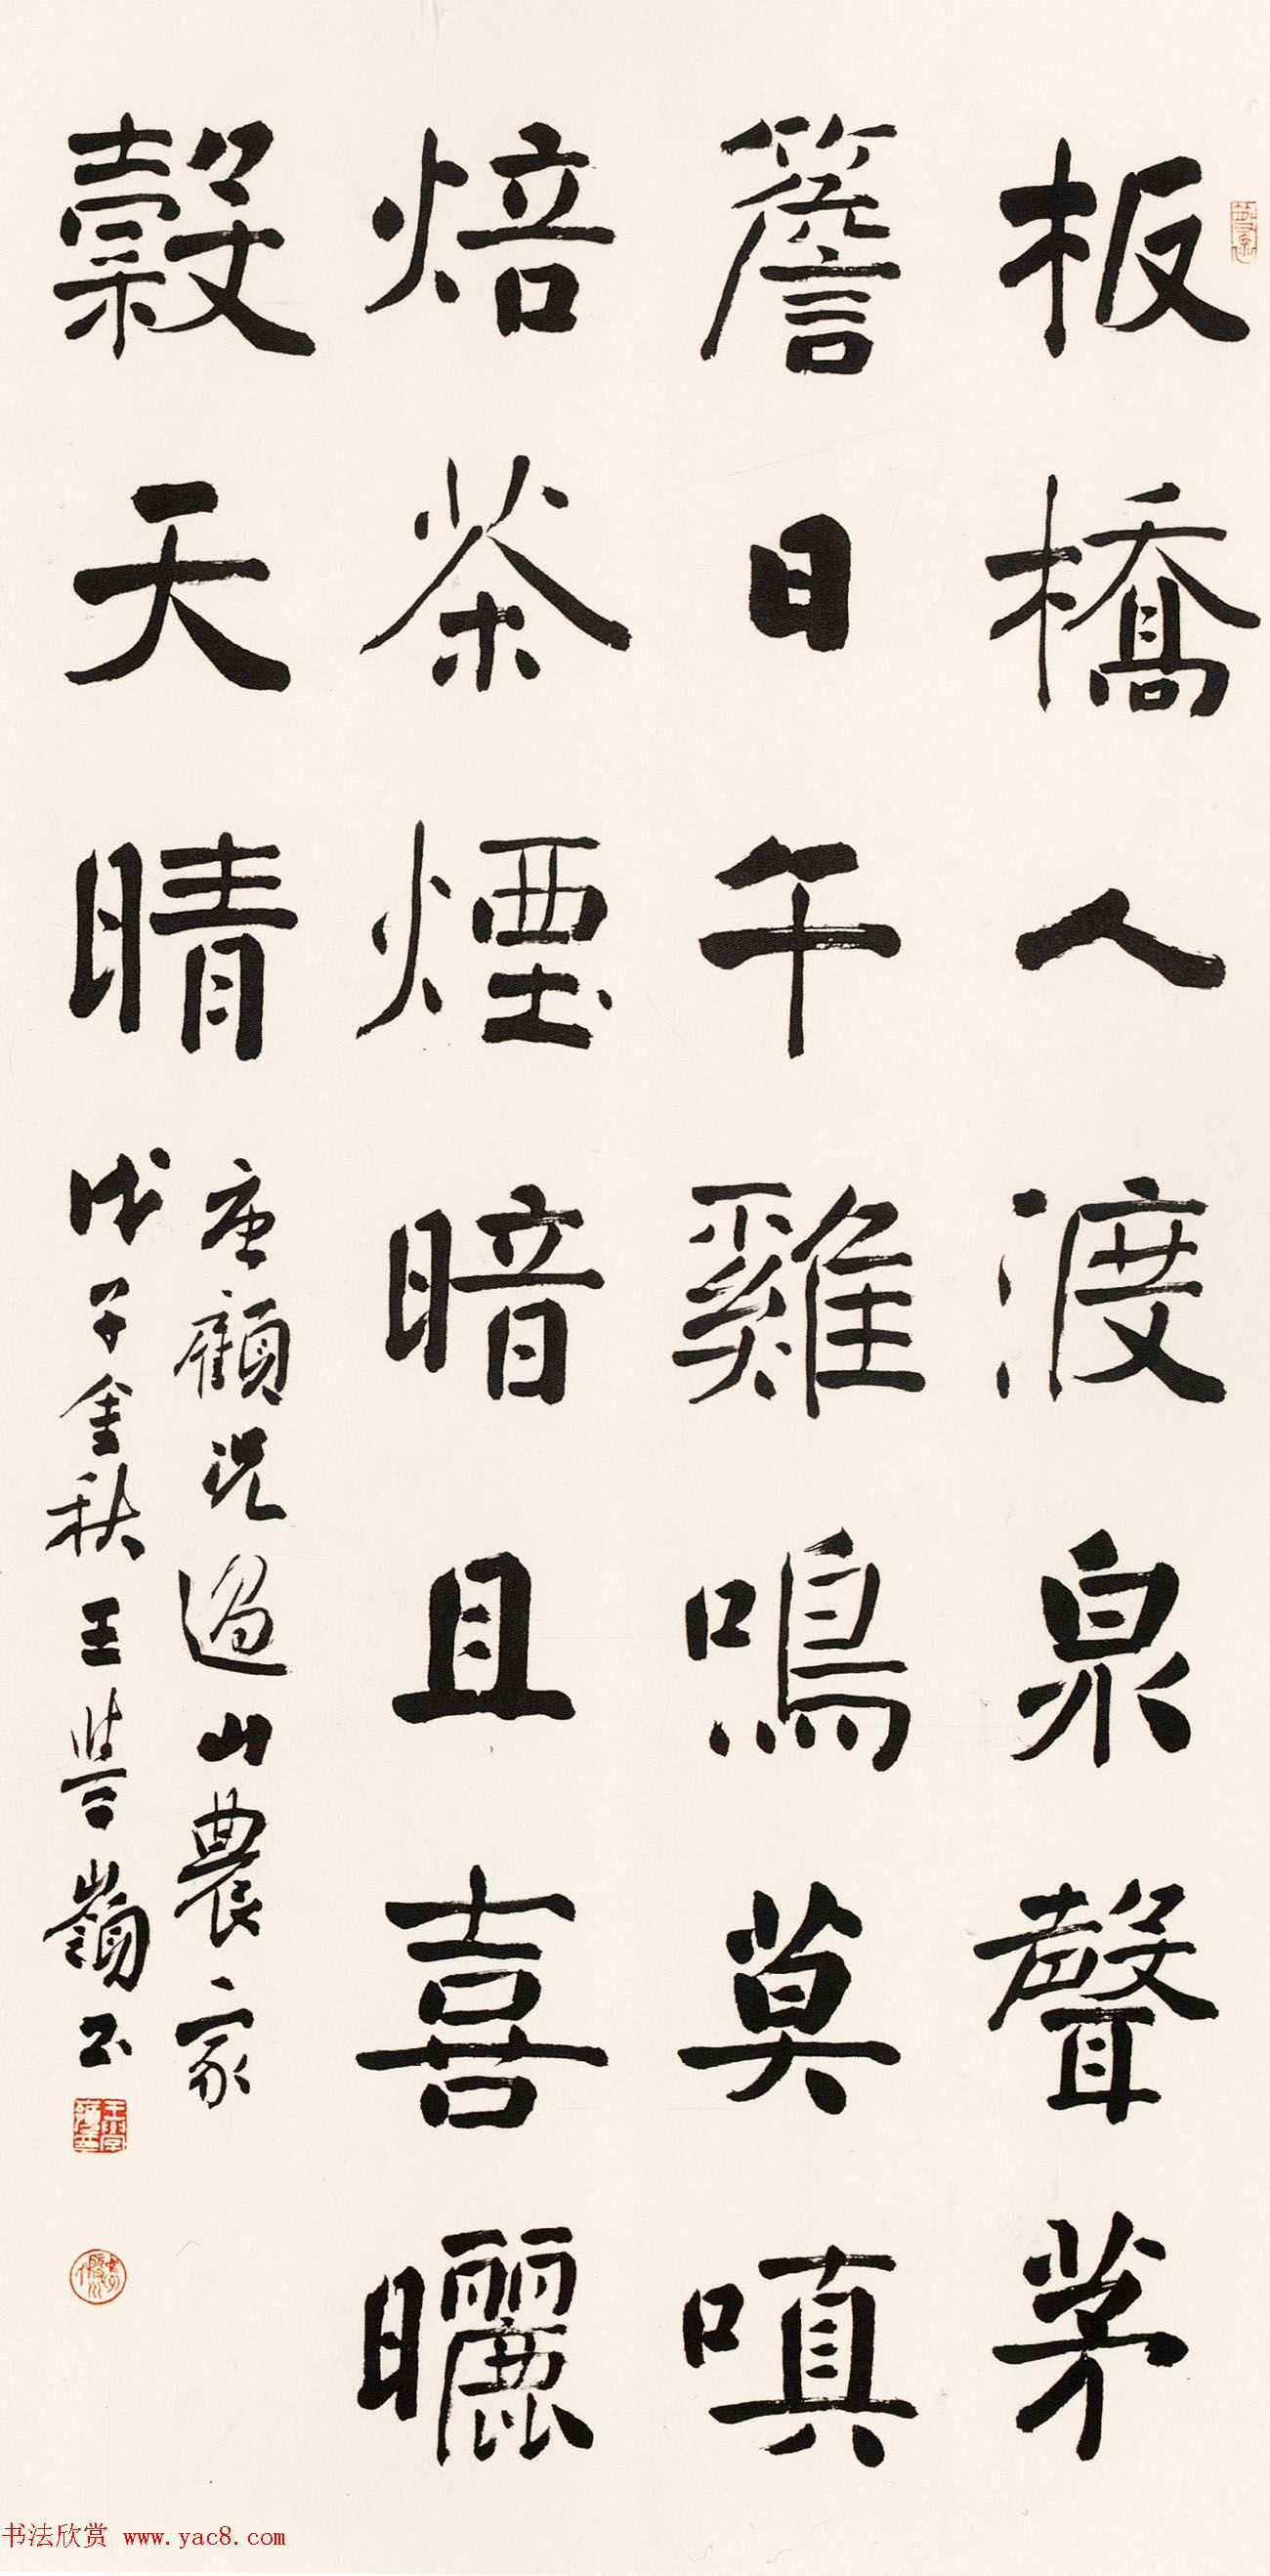 板橋人渡泉聲茅
簷日午雞鳴莫嗔
焙茶煙暗且喜曬
穀天晴
唐顧況過山農家
戊子金秋王學嶺书
书法欣赏 www.yac8.com